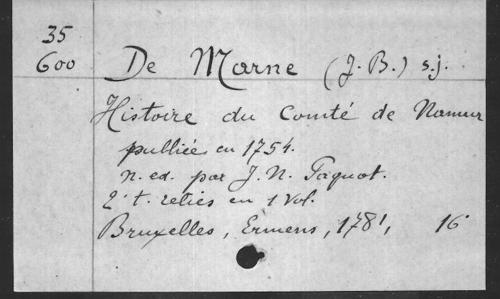 35
600
De Marne (J. B.) s.j.
Histoire du Comté de Namur
publiée en 1754.
n. ed. par J. N. Paquot.
2 t. reliés en 1 vol.
Bruxelles, Ermens, 1781, 16°